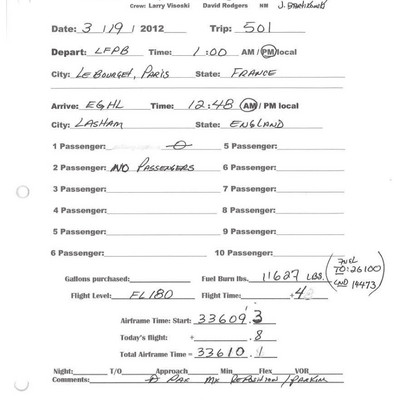 Crew: Larry Visoski David Rodgers
Date: 3 / 19 / 2012 Trip: 501
Depart: LFPB Time: 1:00 AM / PM local
City: LE BOURGET, PARIS State: FRANCE
Arrive: EGHL Time: 12:48 AM / PM local
City: LASHAM State: ENGLAND
1 Passenger: 0 5 Passenger:
2 Passenger: NO PASSENGERS 6 Passenger:
3 Passenger: 7 Passenger:
4 Passenger: 8 Passenger:
5 Passenger: 9 Passenger:
6 Passenger: 10 Passenger:
Gallons purchased: Fuel Burn lbs. 11627 LBS. (FUEL TO: 26100 LAND 14473)
Flight Level: FL180 Flight Time:
Airframe Time: Start: 33609.3
Today's flight: + .8
Total Airframe Time = 33610.1
Night: T/O Approach Min Flex VOR
Comments: PAX MX